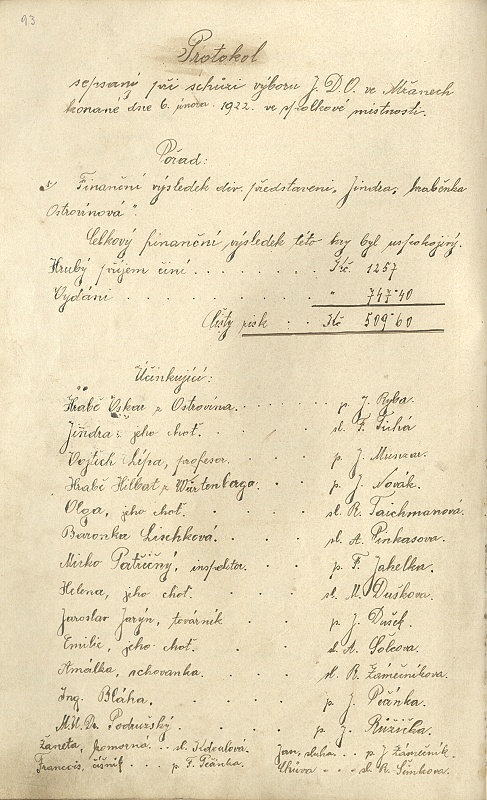 93
Protokol
sepsaný při schůzi výboru J. D. O. ve Mřanech
konané dne 6. února 1922 ve spolkové místnosti.
Pořad:
Finanční výsledek div. představení, Jindra, hraběnka
Ostrovínová".
Celkový finanční výsledek této hry byl uspokojivý.
Hrubý příjem činí . . . . . . . . Kč. 1257
Vydání . . . . . . . . . . " 747·40
Čistý zisk . . Kč 509·60
Účinkující:
Hrabě Oskar z Ostrovína. . . . . . p. J. Ryba.
Jindra, jeho choť. . . . . . sl. F. Tichá
Vojtěch Lípa, profesor. . . . . p. J. Munzar.
Hrabě Hilbat z Würtenberga. . . . p. J. Novák.
Olga, jeho choť. . . . . sl. R. Taichmanová.
Baronka Lischková. . . . . sl. A. Pinkasova.
Mirko Patřičný, inspektor. . . . p. F. Jahelka.
Helena, jeho choť. . . . . sl. M. Duškova.
Jaroslav Jarýn, továrník . . . p. J. Dušek.
Emilie, jeho choť. . . . sl. A. Šolcova.
Amálka, schovanka. . . . . sl. R. Zámečníkova.
Ing. Bláha. . . . . . p. J. Pěánka.
M.U.Dr. Podružský . . . . p. J. Růžička.
Žaneta, komorna . . sl. Kdealova. Jan, sluha . . p. J. Zámečník.
Francois, číšník . . . p. F. Pěánka. Chůva . . . sl. R. Šimkova.